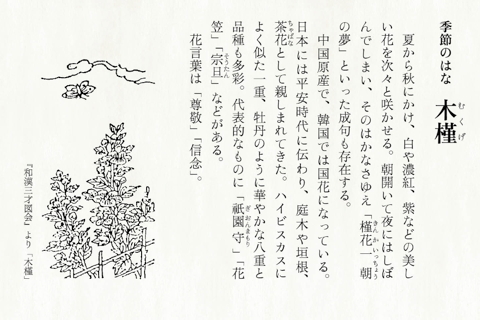 季節のはな 木槿
むくげ
夏から秋にかけ、白や濃紅、紫などの美し
い花を次々と咲かせる。朝開いて夜にはしぼ
んでしまい、そのはかなさゆえ「槿花一朝
きんかいっちょう
の夢」といった成句も存在する。
中国原産で、韓国では国花になっている。
日本には平安時代に伝わり、庭木や垣根、
茶花として親しまれてきた。ハイビスカスに
ちゃばな
よく似た一重、牡丹のように華やかな八重と
品種も多彩。代表的なものに「祇園守」「花
ぎおんまもり
笠」「宗旦」などがある。
そうたん
花言葉は「尊敬」「信念」。
『和漢三才図会』より「木槿」